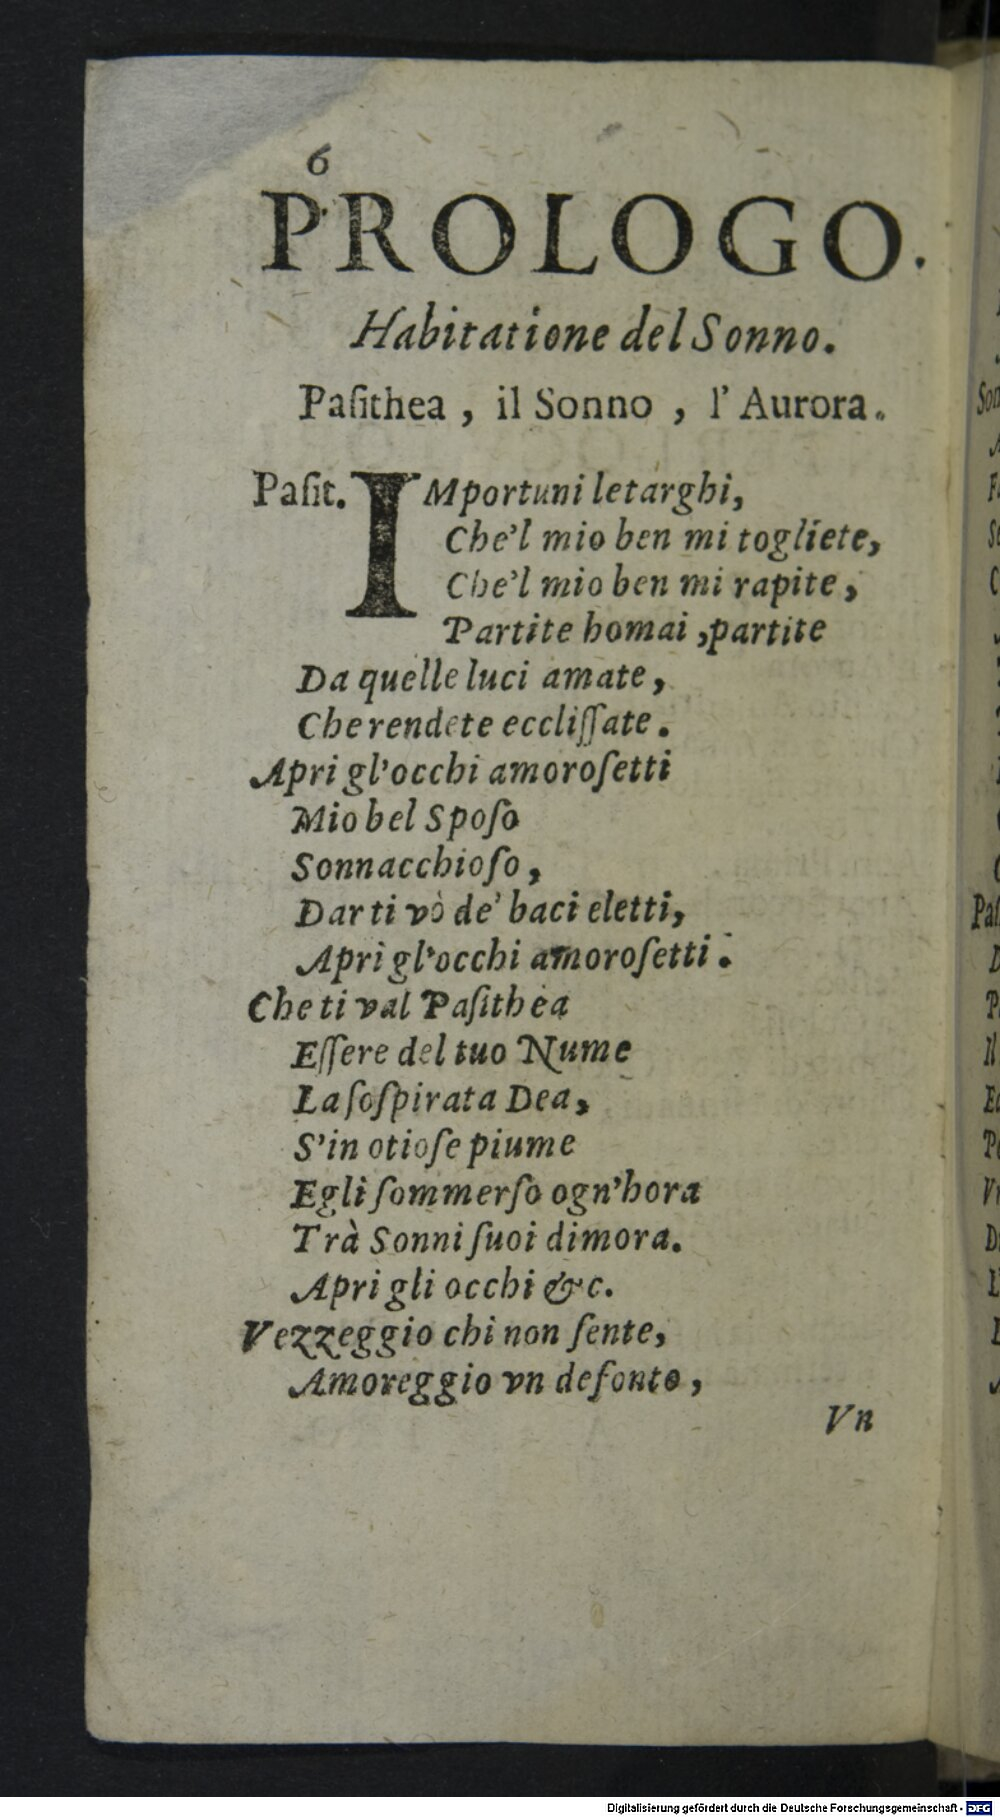 6
PROLOGO.
Habitatione del Sonno.
Paſithea, il Sonno, l'Aurora.
Paſit. IMportuni letarghi,
Che'l mio ben mi togliete,
Che'l mio ben mi rapite,
Partite homai, partite
Da quelle luci amate,
Che rendete eccliſſate.
Apri gl'occhi amoroſetti
Mio bel Spoſo
Sonnacchioſo,
Dar ti vò de' baci eletti,
Apri gl'occhi amoroſetti.
Che ti val Paſithea
Eſſere del tuo Nume
La ſoſpirata Dea,
S'in otioſe piume
Egli ſommerſo ogn'hora
Trà Sonni ſuoi dimora.
Apri gli occhi &c.
Vezzeggio chi non ſente,
Amoreggio vn defonto,
Vn
Digitalisierung gefördert durch die Deutsche Forschungsgemeinschaft - DFG